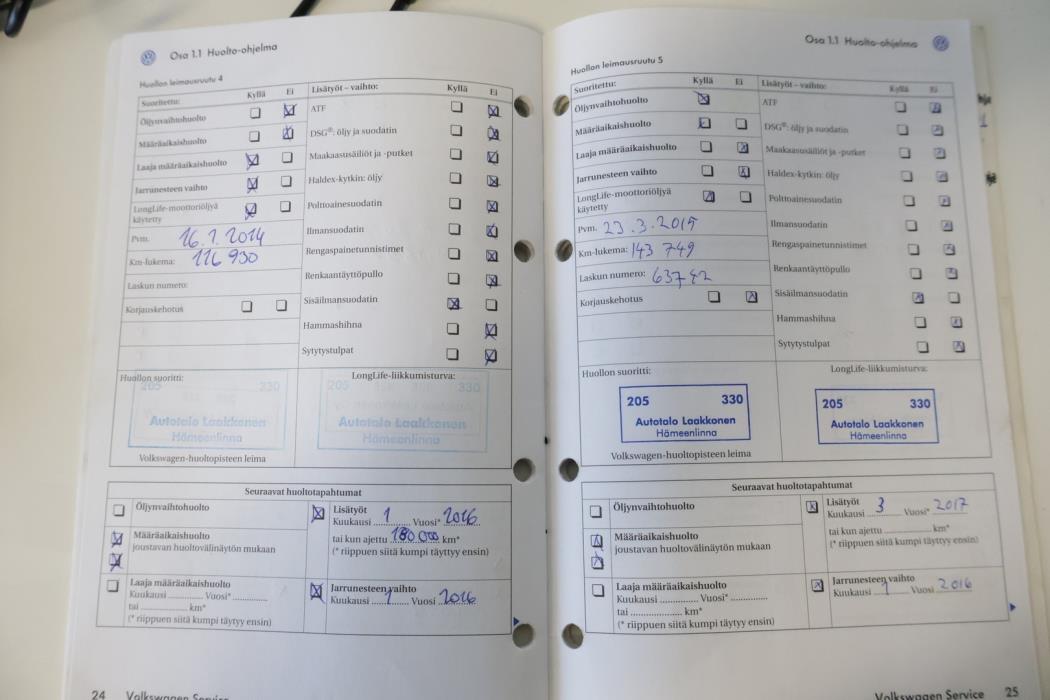 Osa 1.1 Huolto-ohjelma
Huollon leimausruutu 4
Suoritettu: Kyllä Ei Lisätyöt – vaihto: Kyllä Ei
Öljynvaihtohuolto ATF
Määräaikaishuolto DSG®: öljy ja suodatin
Laaja määräaikaishuolto Maakaasusäiliöt ja -putket
Jarrunesteen vaihto Haldex-kytkin: öljy
LongLife-moottoriöljyä
käytetty
Polttoainesuodatin
Pvm. 16.1.2014 Ilmansuodatin
Km-lukema: 116 930 Rengaspainetunnistimet
Laskun numero: Renkaantäyttöpullo
Korjauskehotus Sisäilmansuodatin
Hammashihna
Sytytystulpat
Huollon suoritti: LongLife-liikkumisturva:
205 330 205 330
Autotalo Laakkonen Autotalo Laakkonen
Hämeenlinna Hämeenlinna
Volkswagen-huoltopisteen leima
Seuraavat huoltotapahtumat
Öljynvaihtohuolto Lisätyöt
Kuukausi 1 Vuosi* 2016
Määräaikaishuolto tai kun ajettu 180 000 km*
joustavan huoltovälinäytön mukaan (* riippuen siitä kumpi täyttyy ensin)
Laaja määräaikaishuolto Jarrunesteen vaihto
Kuukausi ............ Vuosi* ............ Kuukausi 1 Vuosi 2016
tai .................... km*
(* riippuen siitä kumpi täytyy ensin)
24 Volkswagen Service
Osa 1.1 Huolto-ohjelma
Huollon leimausruutu 5
Suoritettu: Kyllä Ei Lisätyöt – vaihto: Kyllä Ei
Öljynvaihtohuolto ATF
Määräaikaishuolto DSG®: öljy ja suodatin
Laaja määräaikaishuolto Maakaasusäiliöt ja -putket
Jarrunesteen vaihto Haldex-kytkin: öljy
LongLife-moottoriöljyä
käytetty
Polttoainesuodatin
Pvm. 23.3.2015 Ilmansuodatin
Km-lukema: 143 749 Rengaspainetunnistimet
Laskun numero: 63742 Renkaantäyttöpullo
Korjauskehotus Sisäilmansuodatin
Hammashihna
Sytytystulpat
Huollon suoritti: LongLife-liikkumisturva:
205 330 205 330
Autotalo Laakkonen Autotalo Laakkonen
Hämeenlinna Hämeenlinna
Volkswagen-huoltopisteen leima
Seuraavat huoltotapahtumat
Öljynvaihtohuolto Lisätyöt
Kuukausi 3 Vuosi* 2017
Määräaikaishuolto tai kun ajettu ............ km*
joustavan huoltovälinäytön mukaan (* riippuen siitä kumpi täyttyy ensin)
Laaja määräaikaishuolto Jarrunesteen vaihto
Kuukausi ............ Vuosi* ............ Kuukausi 1 Vuosi 2016
tai .................... km*
(* riippuen siitä kumpi täytyy ensin)
Volkswagen Service 25